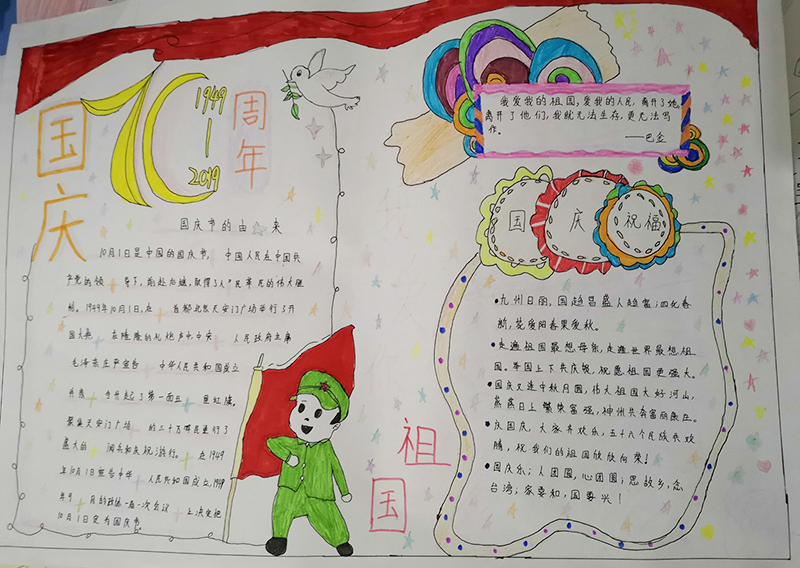 国庆
70
1949
|
2019
周年
国庆节的由来
10月1日是中国的国庆节, 中国人民在中国共
产党的领 导下, 前赴后继, 取得了人民革命的伟大胜
利。1949年10月1日, 在 首都北京天安门广场举行了开
国大典, 在隆隆的礼炮声中,中央 人民政府主席
毛泽东庄严宣告 中华人民共和国成立
并亲 手升起了第一面五 星红旗。
聚集天安门广场 的三十万军民举行了
盛大的 阅兵和庆祝游行。 在1949
年10月1日宣告中华 人民共和国成立,1949
月的政协一届一次会议 上决定把
10月1日定为国庆节
我爱我的祖国,爱我的人民,离开了她,
离开了他们,我就无法生存,更无法写
作。
——巴金
国庆祝福
•九州日丽,国趋昌盛人趋富;四化春
新,花爱阳春果爱秋。
•走遍祖国最想母乐,走遍世界最想祖
国。举国上下共庆贺,祝愿祖国更强大。
•国庆又逢中秋月圆,伟大祖国大好河山,
蒸蒸日上繁荣富强,神州共奔富丽康庄。
•庆国庆,大家齐欢乐,五十六个民族共欢
腾,祝我们的祖国欣欣向荣!
•国庆乐;人团圆,心团圆;思故乡,念
台湾;家要和,国要兴!
祖
国